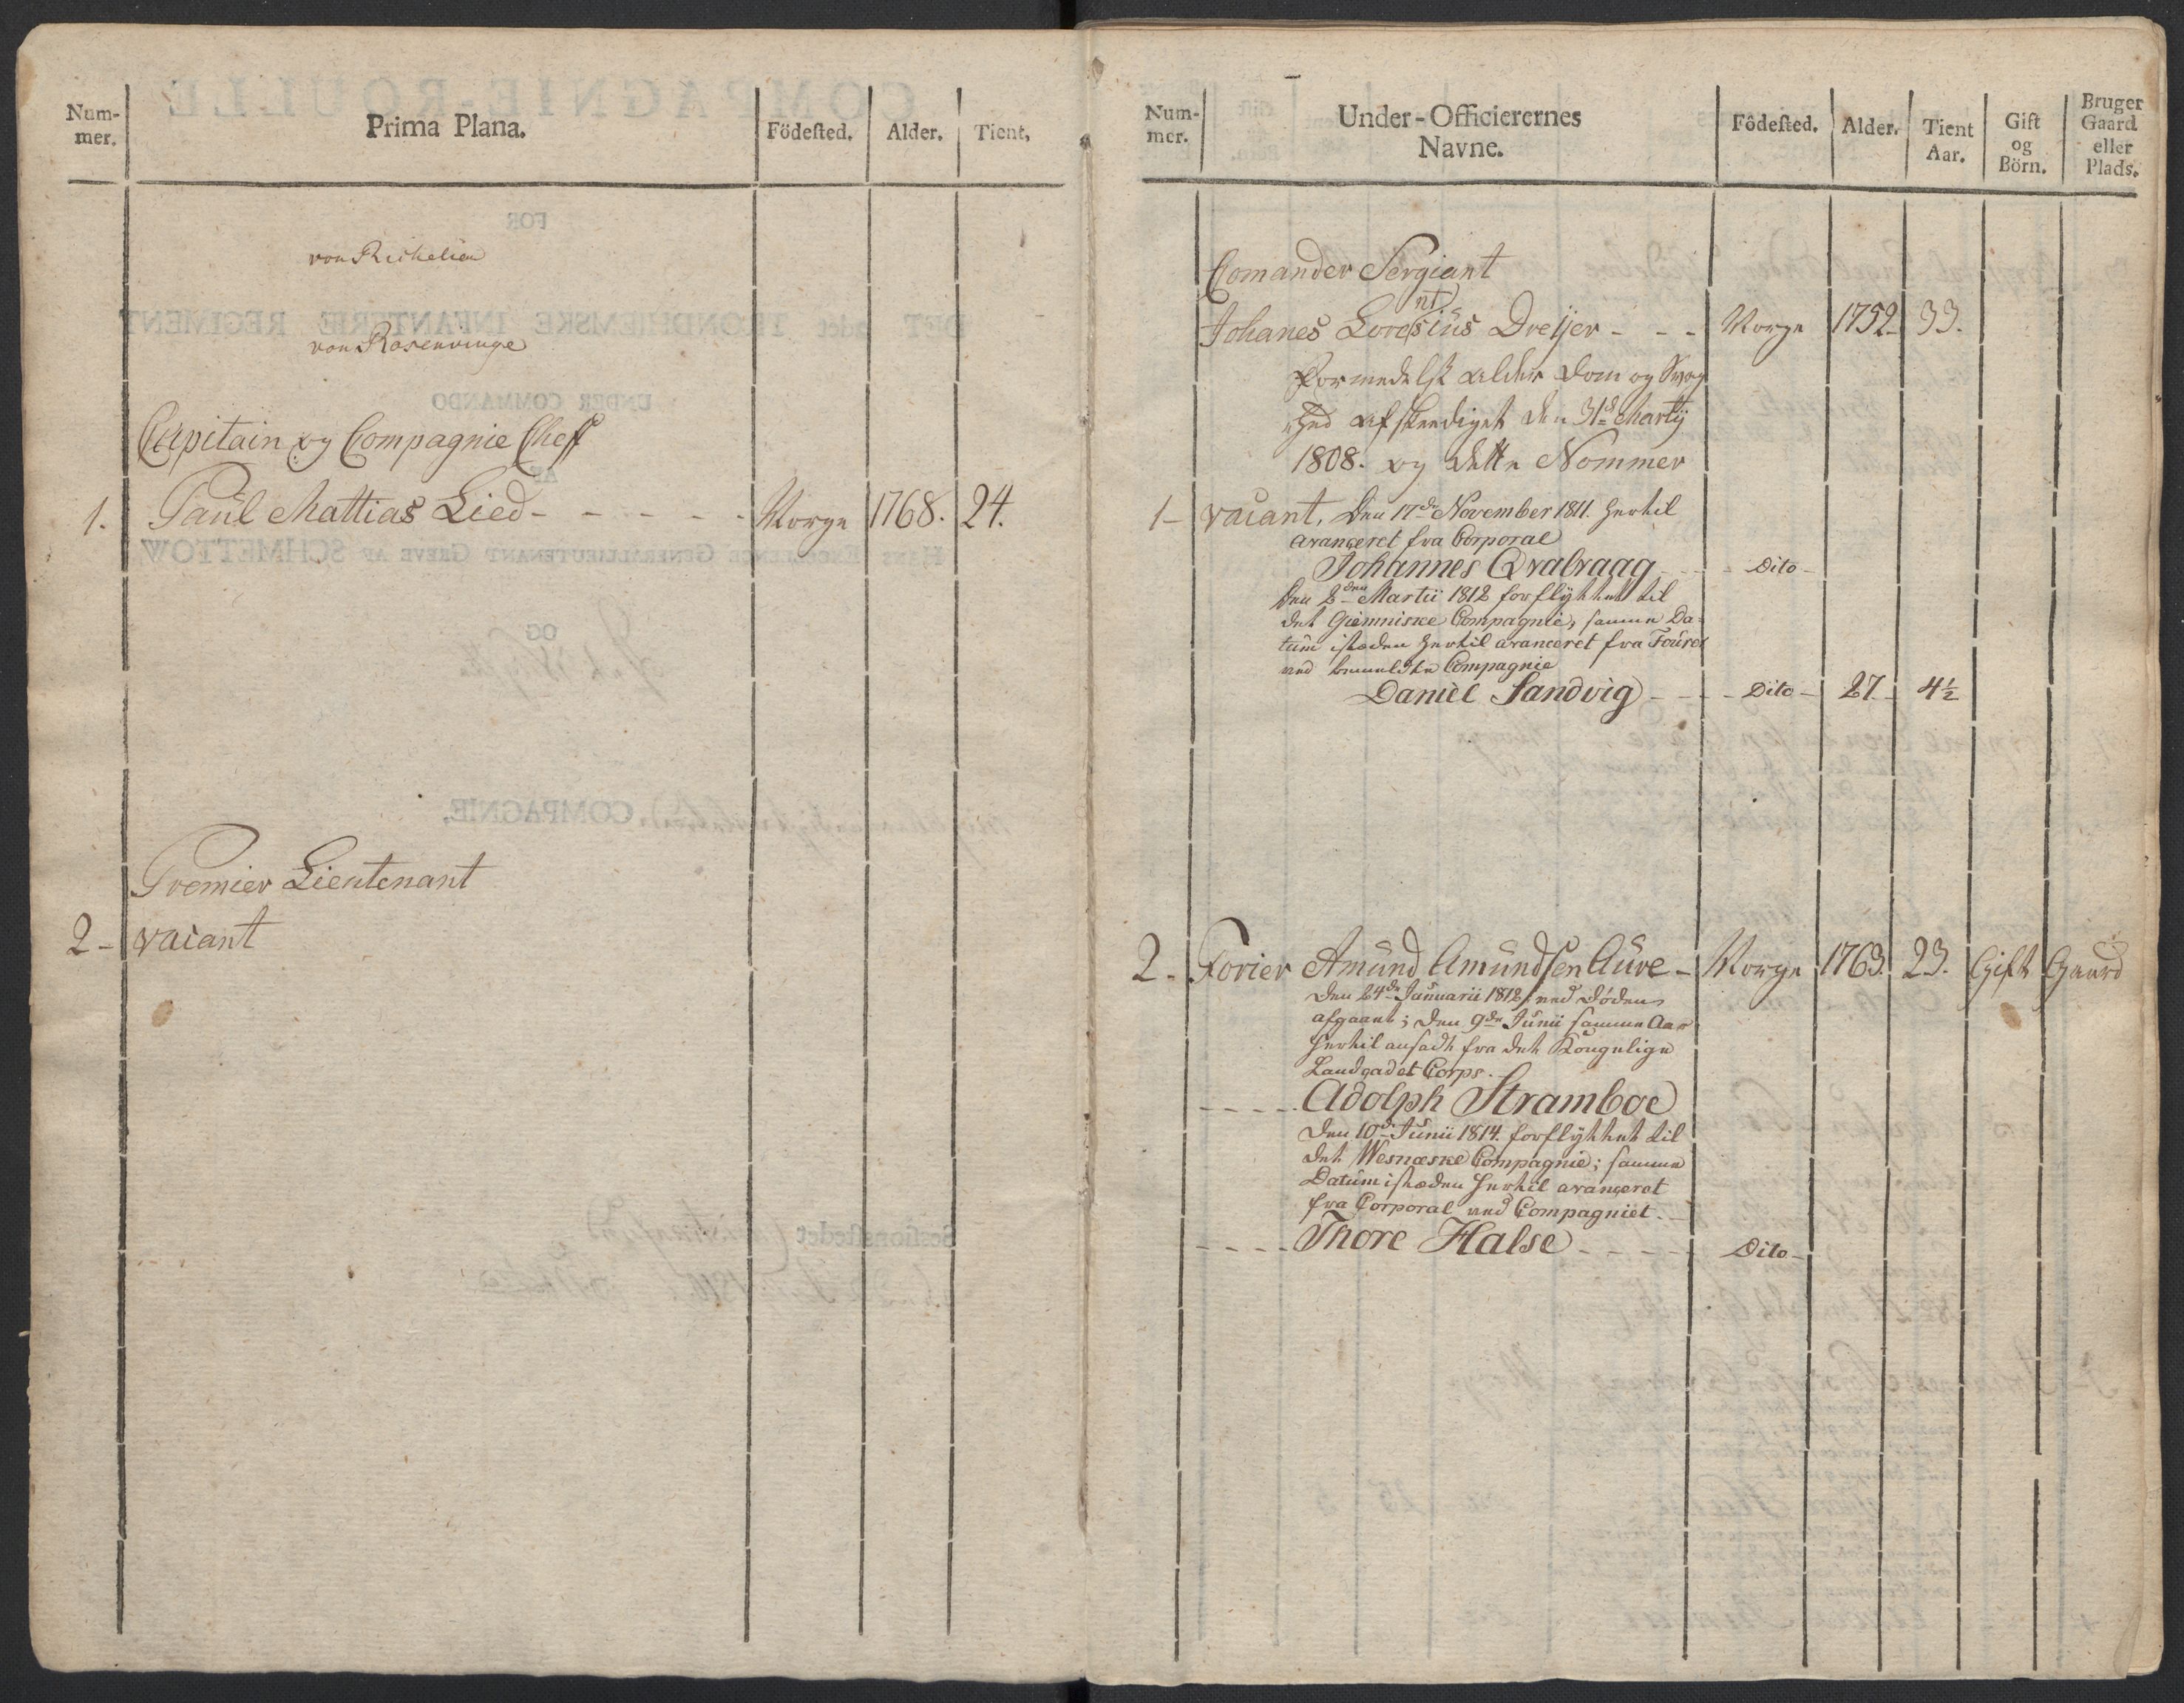 Num-
mer.
Prima Plana.
Födested.
Alder.
Tient,
von Richelieu
von Rosenvinge
Capitain og Compagnie Cheff
1. Paul Mattias Lied - - - - - Norge 1768. 24.
Premier Lieutenant
2 - vacant
Num-
mer.
Under-Officierernes
Navne.
Födested.
Alder.
Tient
Aar.
Gift
og
Börn.
Bruger
Gaard
eller
Plads.
Comander Sergiant
nt
Johanes Loresius Dreÿer - - - Norge 1752 33.
Formedelst alder dom og Svag
hed afskediget den 31te Martÿ
1808. og dette Nommer
1 - vacant, Den 17de November 1811. hertil
avanceret fra Corporal
Johannes Qvalvaag - - - Dito -
Den 2den Martii 1812 forflÿttet til
det Giemniske Compagnie, samme Da-
tum isteden hertil avanceret fra Fourer
ved bemeldte Compagnie
Daniel Sandvig - - - Dito - 27 - 4½
2 - Forier Amund Amundsen Aure - Norge 1763. 23. Gift Gaard
Den 24de Januarii 1812 ved døden
afgaaet; den 9de Junii samme Aar
hertil ansadt fra det Kongelige
Landcadet Corps.
- - - - - Adolph Stramboe
Den 10de Junii 1814. forflÿttet til
det Wesnæske Compagnie; samme
Datum isteden hertil avanceret
fra Corporal ved Compagniet. -
- - - - Thore Halse - - - - - Dito -